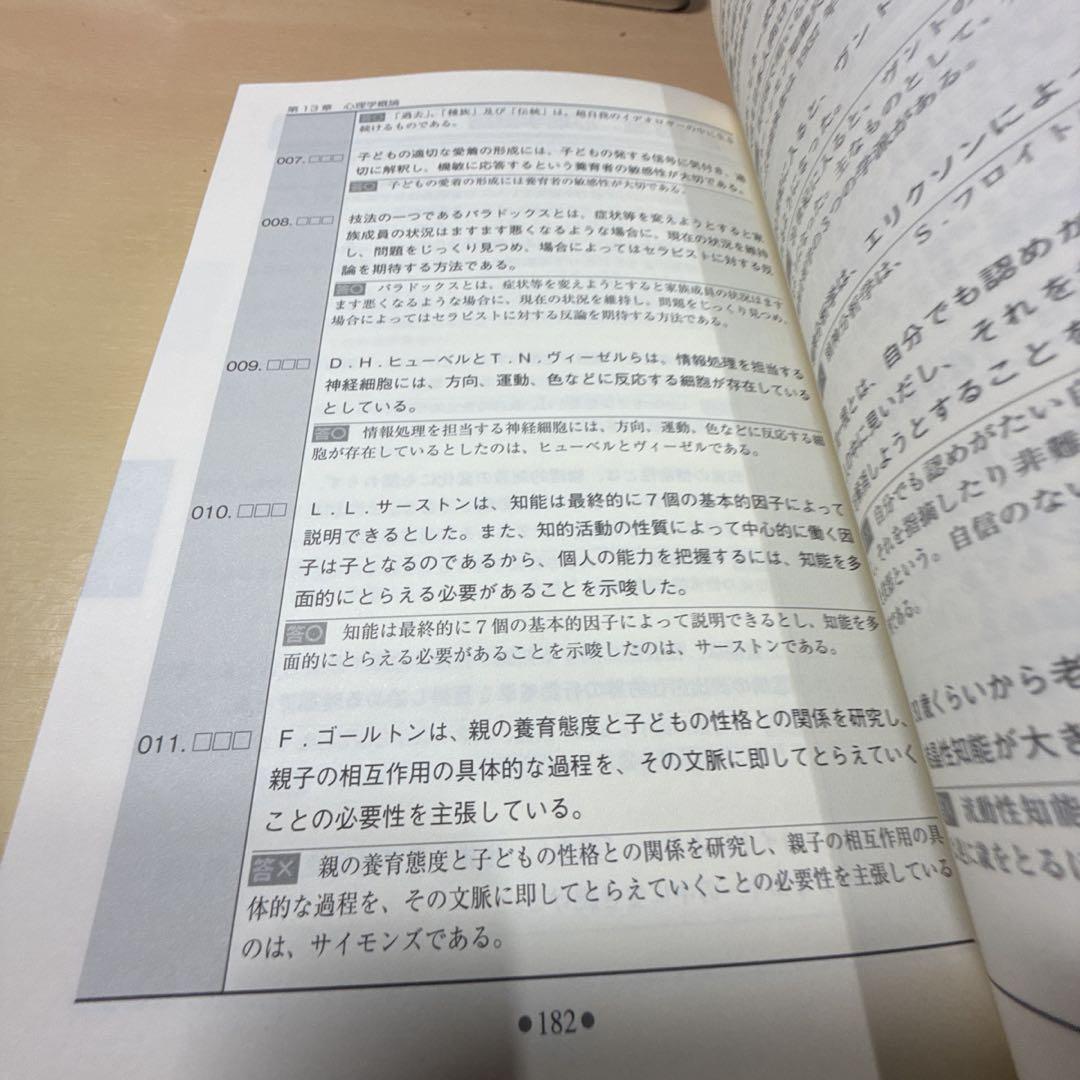 第13章 心理学概論
答○ 「過去」、「種族」及び「伝統」は、超自我のイデオロギーの中に生き
続けるものである。
007.□□□ 子どもの適切な愛着の形成には、子どもの発する信号に気付き、適
切に解釈し、機敏に応答するという養育者の敏感性が大切である。
答○ 子どもの愛着の形成には養育者の敏感性が大切である。
008.□□□ 技法の一つであるパラドックスとは、症状等を変えようとすると家
族成員の状況はますます悪くなるような場合に、現在の状況を維持
し、問題をじっくり見つめ、場合によってはセラピストに対する反
論を期待する方法である。
答○ パラドックスとは、症状等を変えようとすると家族成員の状況はます
ます悪くなるような場合に、現在の状況を維持し、問題をじっくり見つめ、
場合によってはセラピストに対する反論を期待する方法である。
009.□□□ D.H.ヒューベルとT.N.ヴィーゼルらは、情報処理を担当する
神経細胞には、方向、運動、色などに反応する細胞が存在している
としている。
答○ 情報処理を担当する神経細胞には、方向、運動、色などに反応する細
胞が存在しているとしたのは、ヒューベルとヴィーゼルである。
010.□□□ L.L.サーストンは、知能は最終的に7個の基本的因子によって
説明できるとした。また、知的活動の性質によって中心的に働く因
子は子となるのであるから、個人の能力を把握するには、知能を多
面的にとらえる必要があることを示唆した。
答○ 知能は最終的に7個の基本的因子によって説明できるとし、知能を多
面的にとらえる必要があることを示唆したのは、サーストンである。
011.□□□ F.ゴールトンは、親の養育態度と子どもの性格との関係を研究し、
親子の相互作用の具体的な過程を、その文脈に即してとらえていく
ことの必要性を主張している。
答× 親の養育態度と子どもの性格との関係を研究し、親子の相互作用の具
体的な過程を、その文脈に即してとらえていくことの必要性を主張している
のは、サイモンズである。
●182●
ヴント
の3つの学派がある。
エリクソンによ
S.フロイト
とは、自分でも認めが
の中に見いだし、それを
しようとすることを
自分でも認めがたい自
それを指摘したり非難
という。自信のない
である。
歳くらいから老
性知能が大き
流動性知能